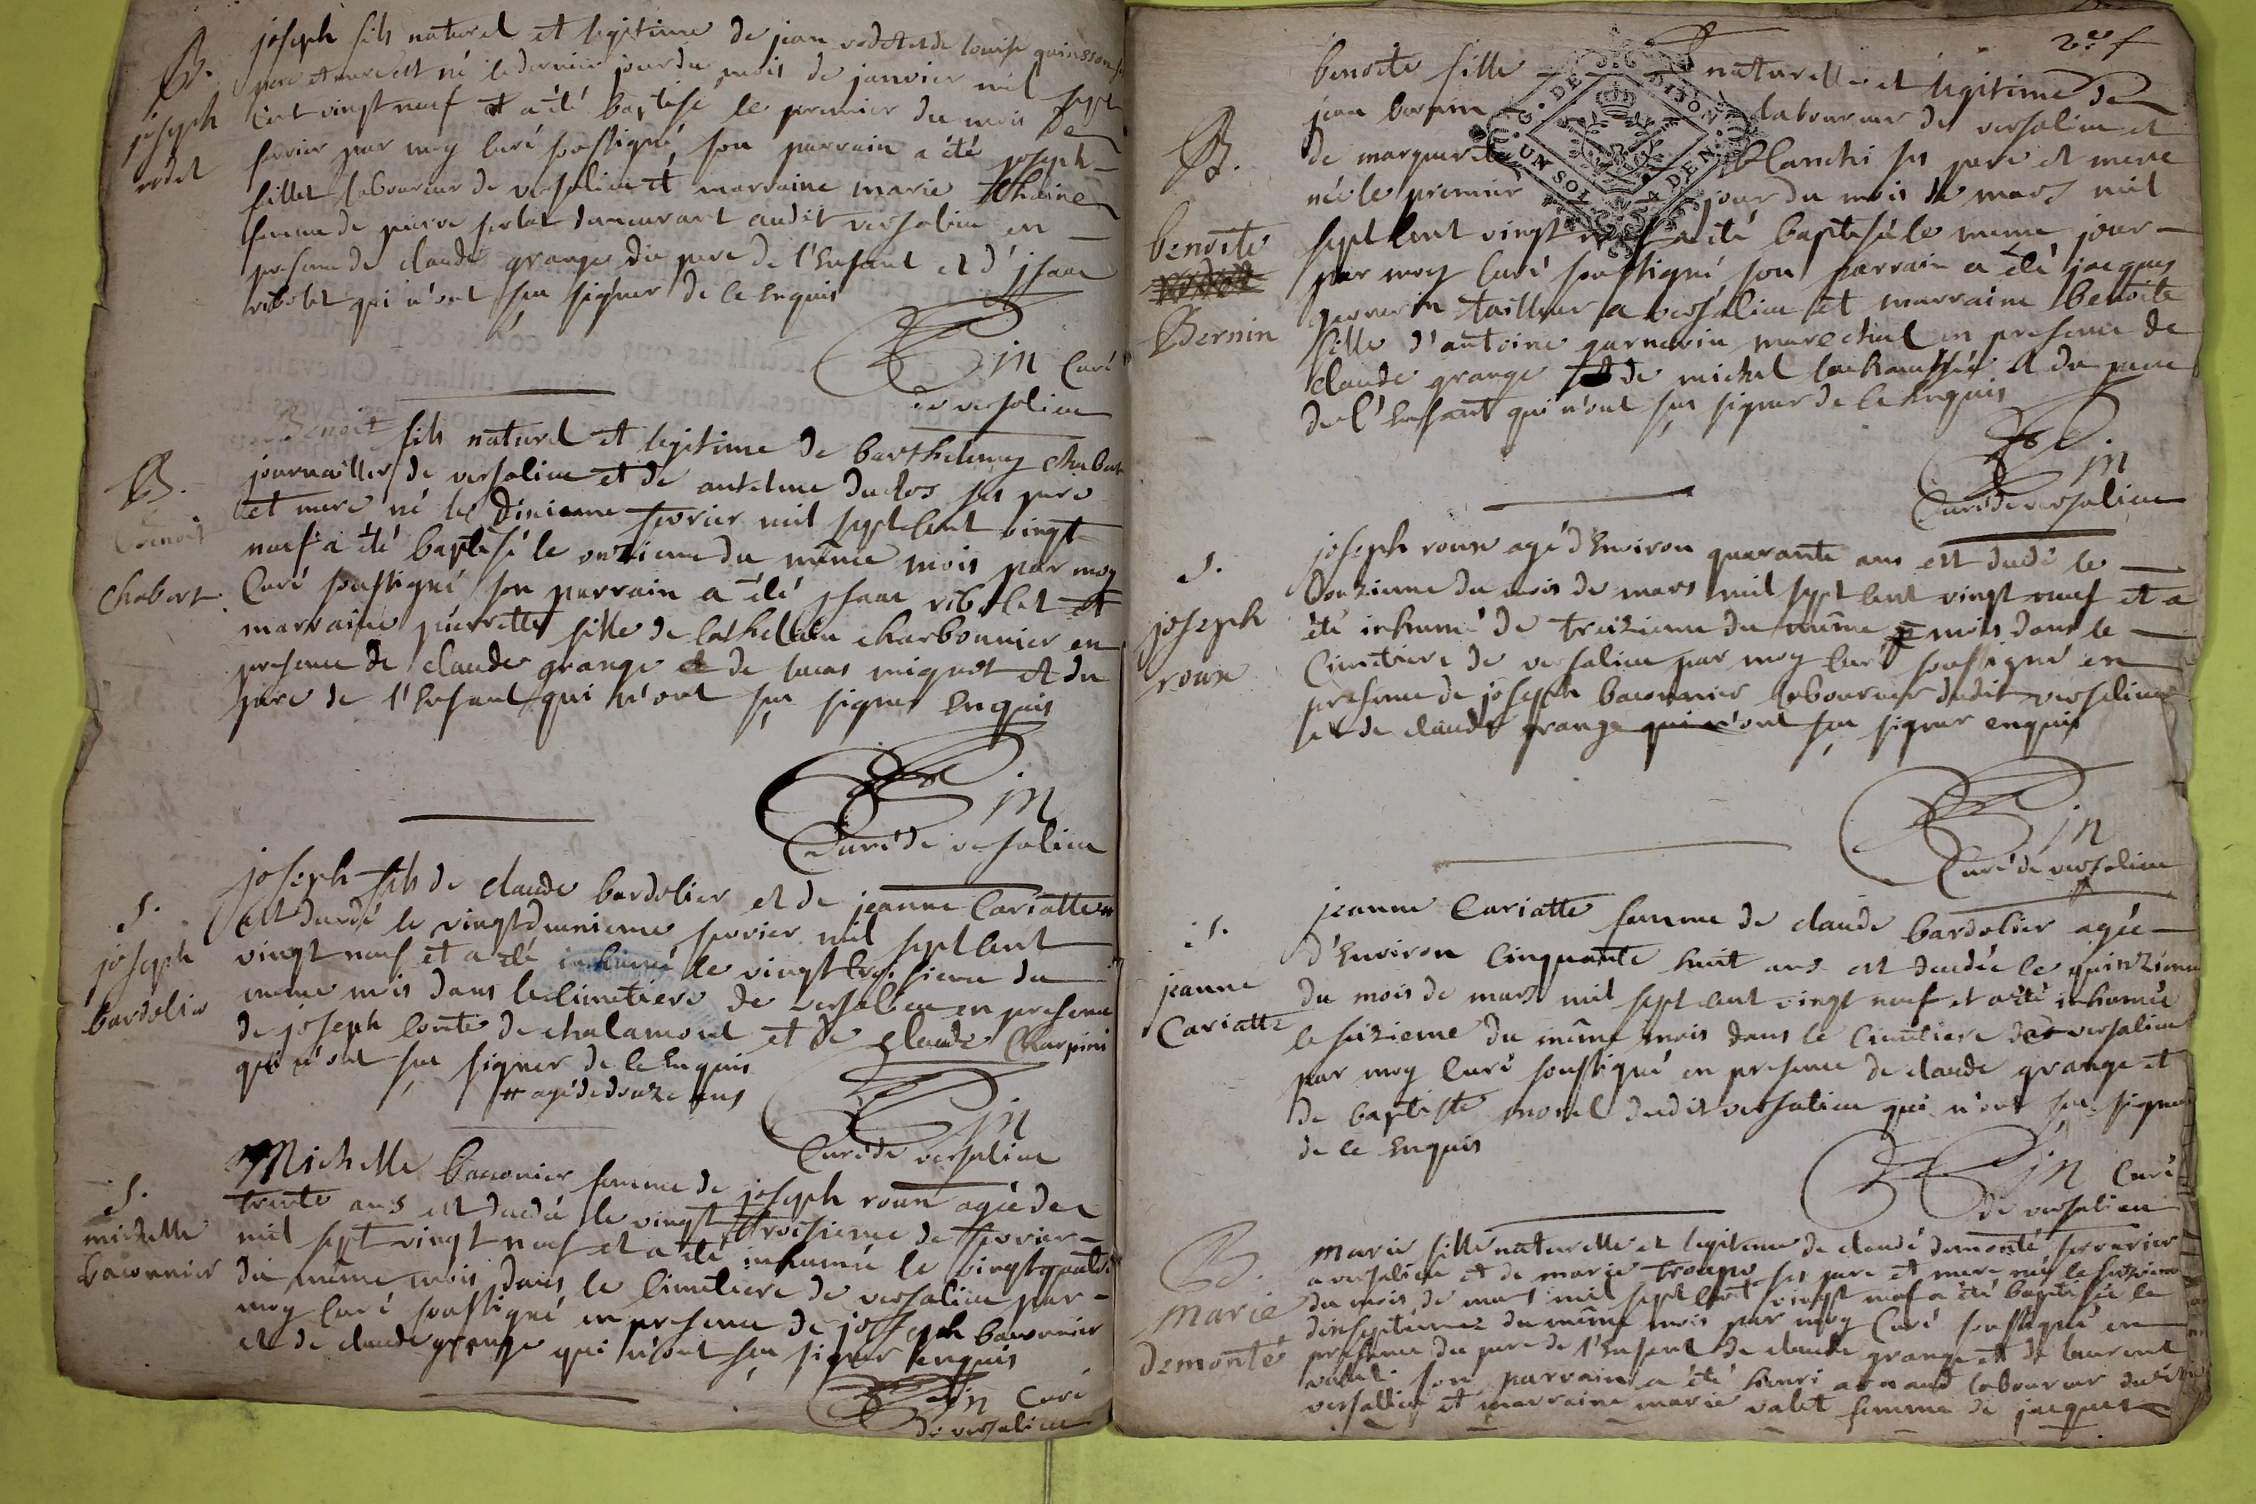 B.
joseph
rodet
joseph fils naturel et legitime de jean rodet et de louise
pere et mere est né le dernier jour du mois de janvier mil sept
cent vingt neuf et a été baptisé le premier du mois de
fevrier par moy curé soussigné son parrain a été joseph
fillet laboureur de versalieu et marraine marie
femme de pierre demeurant audit versalieu en
presence de claude grange du pere de l'enfant et d'jsaac
ribolet qui n'ont sçu signer de ce enquis
jn curé
de versalieu
B.
benoit
chabert
Benoit fils naturel et legitime de barthelemy chabert
journaillier de versalieu et de antelme duclos ses pere
et mere né le dixieme fevrier mil sept cent vingt
neuf a été baptisé le onzieme du même mois par moy
curé soussigné son parrain a été jsaac ribolet et
marraine pierrette fille de charbonnier en
presence de claude grange et de lucas miguet et du
pere de l'enfant qui n'ont sçu signer enquis
jn
Curé de versalieu
S.
joseph
bardolier
joseph fils de claude bardolier et de jeanne Cariatte #
est dcedé le vingt deuxieme fevrier mil sept cent
vingt neuf et a été inhumé le vingt troisieme du
meme mois dans le cimetiere de versalieu en presence
de joseph conte de chalamont et de claude Charpini
qui n'ont sçu signer de ce enquis
# agé de douze ans
jn
Curé de versalieu
S.
michelle
baconnier
Michelle baconier femme de joseph roux agée de
trente ans est dcedée le vingt troisieme de fevrier
mil sept vingt neuf et a été inhumée le vingt quatre
du même mois dans le cimetiere de versalieu par
moy curé soussigné en presence de joseph baconnier
et de claude grange qui n'ont sçu signer enquis
jn curé
de versalieu
2e f
G. DE DIJON
UN SOL 4 DEN.
B.
benoite
Bernin
benoite fille naturelle et legitime de
jean bernin laboureur de versalieu et
de marguerite blanchi ses pere et mere
née le premier jour du mois de mars mil
sept cent vingt a été baptisée le meme jour
par moy curé soussigné son parrain a été jacques
perrerin tailleur a versalieu et marraine benoite
fille d'antoine garnerin marechal en presence de
claude grange et de michel et du pere
de l'enfant qui n'ont sçu signer de ce enquis
jn
Curé de versalieu
S.
joseph
roux
joseph roux agé d'environ quarante ans est dcedé le
douzieme du mois de mars mil sept cent vingt neuf et a
été inhumé de treizieme du même mois dans le
cimetiere de versalieu par moy curé soussigné en
presence de joseph baconnier laboureur dudit versalieu
et de claude grange qui n'ont sçu signer enquis
jn
Curé de versalieu
S.
jeanne
Cariatte
jeanne Cariatte femme de claude bardolier agée
d'environ cinquante huit ans est dcedée le quinzieme
du mois de mars mil sept cent vingt neuf et a été inhumée
le seizieme du même mois dans le cimetiere de versalieu
par moy curé soussigné en presence de claude grange et
de baptiste morel dudit versalieu qui n'ont sçu signer
de ce enquis
jn curé
de versalieu
B.
marie
demonté
marie fille naturelle et legitime de claude demonté serrurier
a versalieu et de marie ses pere et mere née le seizieme
du mois de mars mil sept cent vingt neuf a été baptisée le
dixseptieme du même mois par moy curé soussigné en
presence du pere de l'enfant de claude grange et de laurent
son parrain a été henri arnaud laboureur dudit
versallieu et marraine marie valet femme de jacques